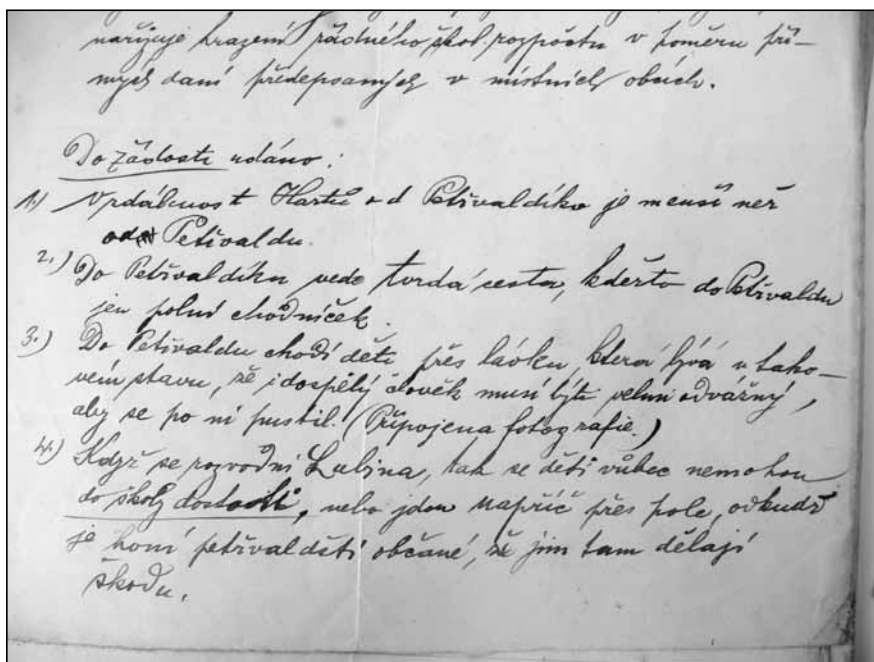 nařizuje hrazení řádného škol. rozpočtu v poměru pří-
mých daní předepsaných v místních obcích.
Do žádosti udáno:
1.) Vzdálenost Hartů od Petřvaldíka je menší než
od Petřvaldu.
2.) Do Petřvaldíku vede tvrdá cesta, kdežto do Petřvaldu
jen polní chodníček.
3.) Do Petřvaldu chodí děti přes lávku, která bývá v tako-
vém stavu, že i dospělý člověk musí býti velmi odvážný,
aby se po ní pustil. (Připojena fotografie.)
4.) Když se rozvodní Lubina, tak se děti vůbec nemohou
do školy dostati, nebo jdou napříč přes pole, odkudž
je honí petřvaldští občané, že jim tam dělají
škodu.